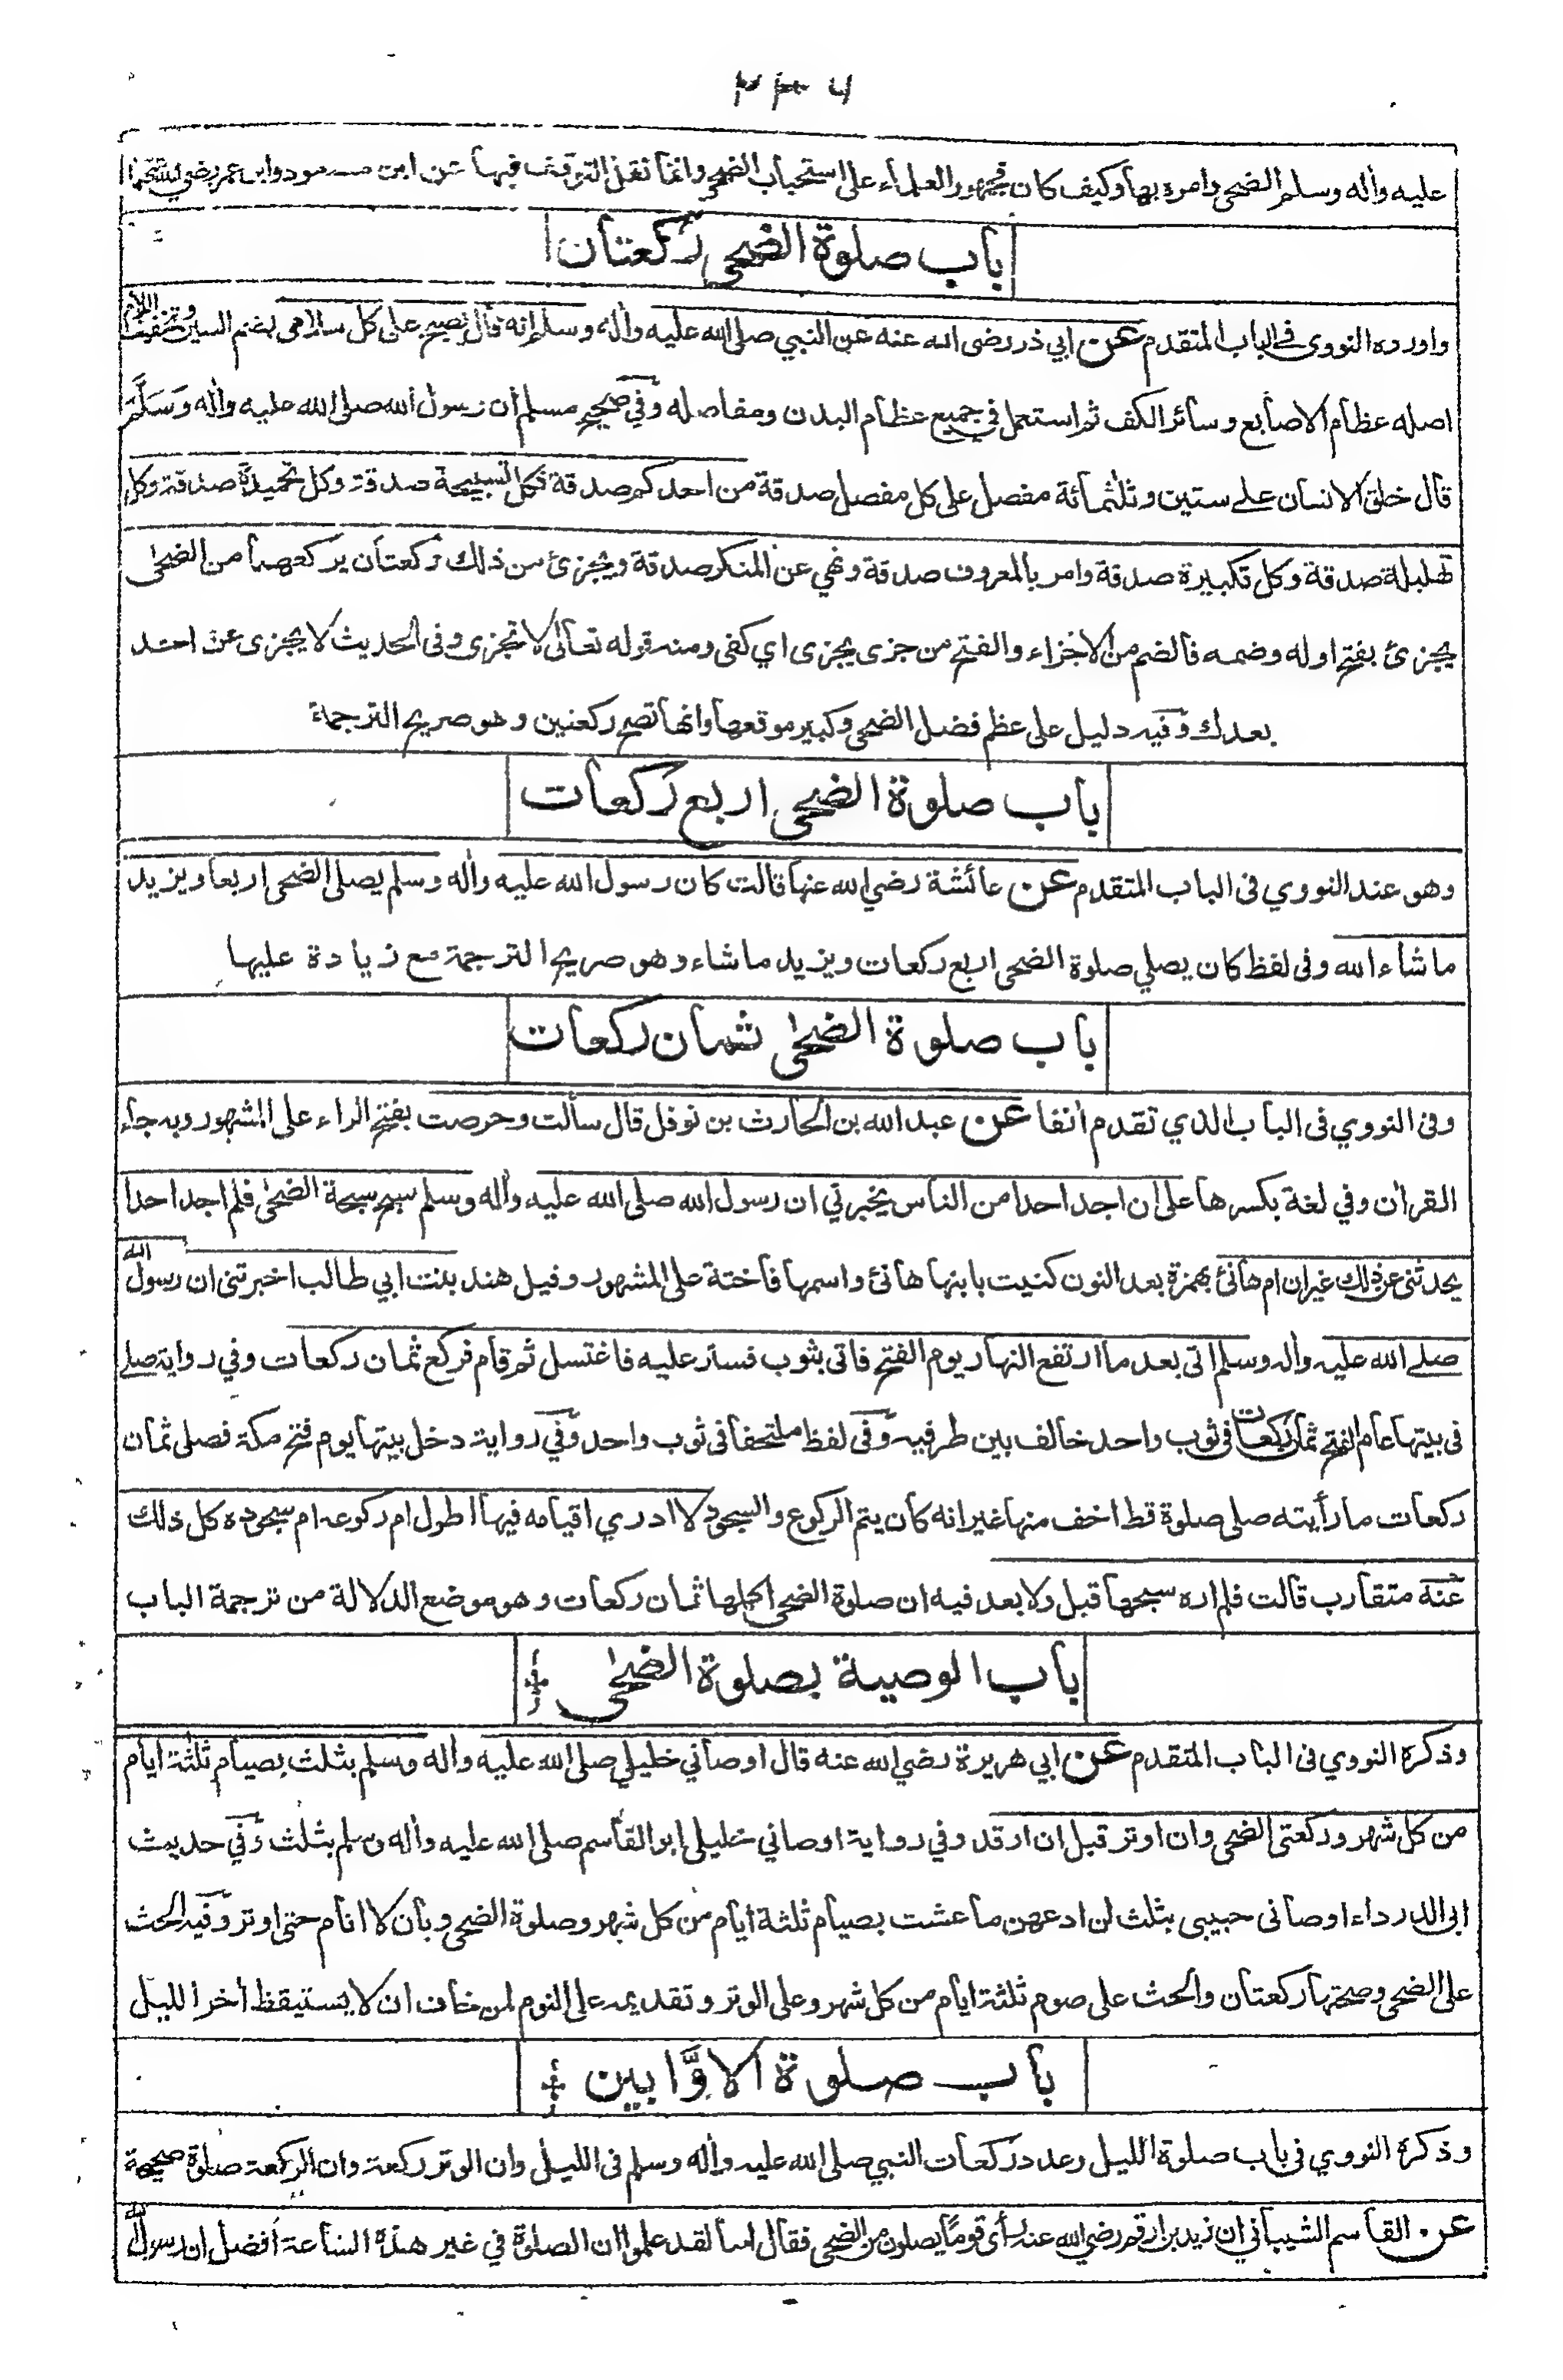 عليه واٰله وسلم الضحى وامره بها وكيف كان فجمهور العلماء على استحباب الضحى وانما نقل التوقف فيها عن ابن مسعود وابن عمر رضي الله عنهما
باب صلوة الضحى ركعتان
واورده النووي في الباب المتقدم عن ابي ذر رضى الله عنه عن النبي صلى الله عليه واٰله وسلم انه قال يصبح على كل سلامى بضم السين وتخفيف اللام
اصله عظام الاصابع وسائر الكف ثم استعمل في جميع عظام البدن ومفاصله وفي صحيح مسلم أن رسول الله صلى الله عليه واٰله وسَلَّم
قال خلق الانسان على ستين وثلثمائة مفصل على كل مفصل صدقة من احدكم صدقة فكل تسبيحة صدقة وكل تحميدة صدقة وكل
تهليلة صدقة وكل تكبيرة صدقة وامر بالمعروف صدقة ونهي عن المنكر صدقة ويجزئ من ذلك ركعتان يركعهما من الضحىٰ
يجزئ بفتح اوله وضمه فالضم من الاجزاء والفتح من جزى يجزى اي كفى ومنه قوله تعالىٰ لا تجزى وفى الحديث لا يجزى عن احد
بعدك وفيه دليل على عظم فضل الضحى وكبير موقعها وانها تصح ركعتين وهو صريح الترجمة
باب صلوة الضحى اربع ركعات
وهو عند النووي فى الباب المتقدم عن عائشة رضي الله عنها قالت كان رسول الله عليه واٰله وسلم يصلى الضحى اربعا ويزيد
ما شاء الله وفى لفظ كان يصلي صلوة الضحى اربع ركعات ويزيد ما شاء وهو صريح الترجمة مع زيادة عليها
باب صلوة الضحىٰ ثمان ركعات
وفى النووي فى الباب الذي تقدم اٰنفا عن عبد الله بن الحارث بن نوفل قال سألت وحرصت بفتح الراء على المشهور وبه جاء
القراٰن وفي لغة بكسرها على ان اجد احدا من الناس يخبرني ان رسول الله صلى الله عليه واٰله وسلم سبح سبحة الضحىٰ فلم اجد احدا
يحدثنى عن ذلك غير ان ام هانئ بهمزة بعد النون كنيت بابنها هانئ واسمها فاختة على المشهور وقيل هند بنت ابي طالب اخبرتنى ان رسول الله
صلے الله عليه واٰله وسلم اتى بعد ما ارتفع النهار يوم الفتح فاتى بثوب فستر عليه فاغتسل ثم قام فركع ثمان ركعات وفي رواية صلے
فى بيتها عام الفتح ثمان ركعات فى ثوب واحد خالف بين طرفيه وفى لفظ ملتحفا فى ثوب واحد وفي رواية دخل بيتها يوم فتح مكة فصلى ثمان
ركعات ما رأيته صلى صلوة قط اخف منها غير انه كان يتم الركوع والسجود لا ادري اقيامه فيها اطول ام ركوعه ام سجوده كل ذلك
عنه متقارب قالت فلم اره سبحها قبل ولا بعد فيه ان صلوة الضحى اكملها ثمان ركعات وهو موضع الدلالة من ترجمة الباب
باب الوصية بصلوة الضحىٰ
وذكره النووي فى الباب المتقدم عن ابي هريرة رضي الله عنه قال اوصاني خليلي صلى الله عليه واٰله وسلم بثلث بصيام ثلثة ايام
من كل شهر وركعتى الضحى وان اوتر قبل ان ارقد وفي رواية اوصاني خليلي ابو القاسم صلى الله عليه واٰله وسلم بثلث وفي حديث
ابى الدرداء اوصانى حبيبى بثلث لن ادعهن ما عشت بصيام ثلثة ايام من كل شهر وصلوة الضحى وبان لا انام حتى اوتر وفيه الحث
على الضحى وصحتها ركعتان والحث على صوم ثلثة ايام من كل شهر وعلى الوتر وتقديمه على النوم لمن خاف ان لا يستيقظ اٰخر الليل
باب صلوة الاوَّابين
وذكره النووي فى باب صلوة الليل وعدد ركعات النبي صلى الله عليه واٰله وسلم فى الليل وان الوتر ركعة وان الركعة صلوة صحيحة
عن القاسم الشيباني ان زيد بن ارقم رضي الله عنه رأى قومًا يصلون من الضحى فقال اما لقد علموا ان الصلوة في غير هذه الساعة أفضل ان رسول الله